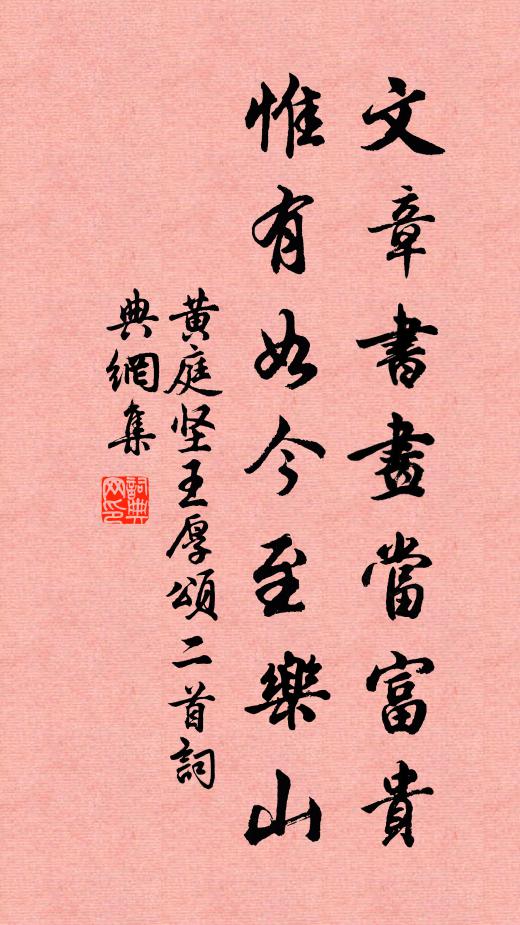 文章書畫當富貴
惟有如今至樂山
黃庭坚王厚頌二首詞
典網集
詞典網印